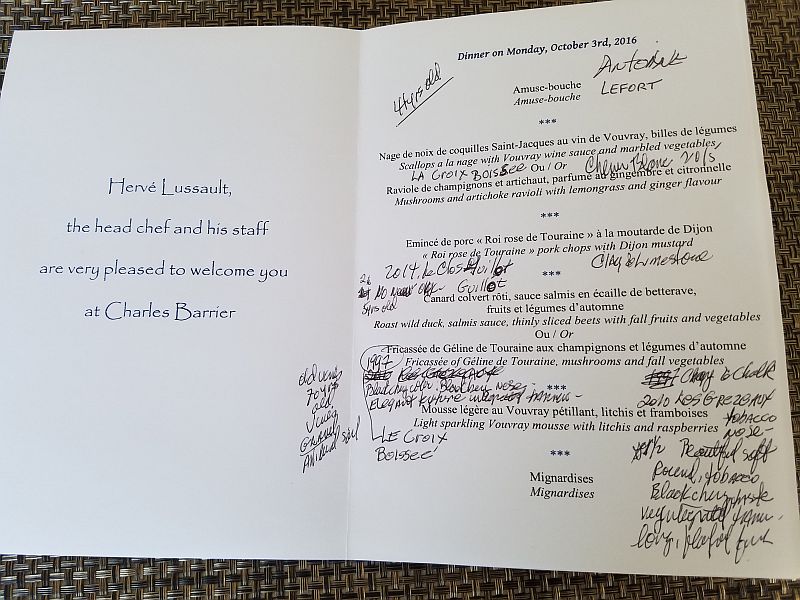 Hervé Lussault,
the head chef and his staff
are very pleased to welcome you
at Charles Barrier
Dinner on Monday, October 3rd, 2016
44 yrs old
Antoine
LEFORT
Amuse-bouche
Amuse-bouche
***
Nage de noix de coquilles Saint-Jacques au vin de Vouvray, billes de légumes
Scallops a la nage with Vouvray wine sauce and marbled vegetables
LA CROIX BOISSEE Ou / Or Chenin Blanc 2015
Raviole de champignons et artichaut, parfumé au gingembre et citronnelle
Mushrooms and artichoke ravioli with lemongrass and ginger flavour
***
Emincé de porc « Roi rose de Touraine » à la moutarde de Dijon
« Roi rose de Touraine » pork chops with Dijon mustard
2014 Le Clos Guillot Clay & Limestone
***
Guillot
Canard colvert rôti, sauce salmis en écaille de betterave,
fruits et légumes d'automne
Roast wild duck, salmis sauce, thinly sliced beets with fall fruits and vegetables
Ou / Or
Fricassée de Géline de Touraine aux champignons et légumes d'automne
1997 Fricassée of Géline de Touraine, mushrooms and fall vegetables
Clay & Chalk
***
Elegant
2010 LES GREZEAUX
Mousse légère au Vouvray pétillant, litchis et framboises
Light sparkling Vouvray mousse with litchis and raspberries
old vines
70 yrs
old
LE CROIX
BOISSEE
tobacco
nose -
Beautiful soft
round, tobacco
Black cherry
***
Mignardises
Mignardises